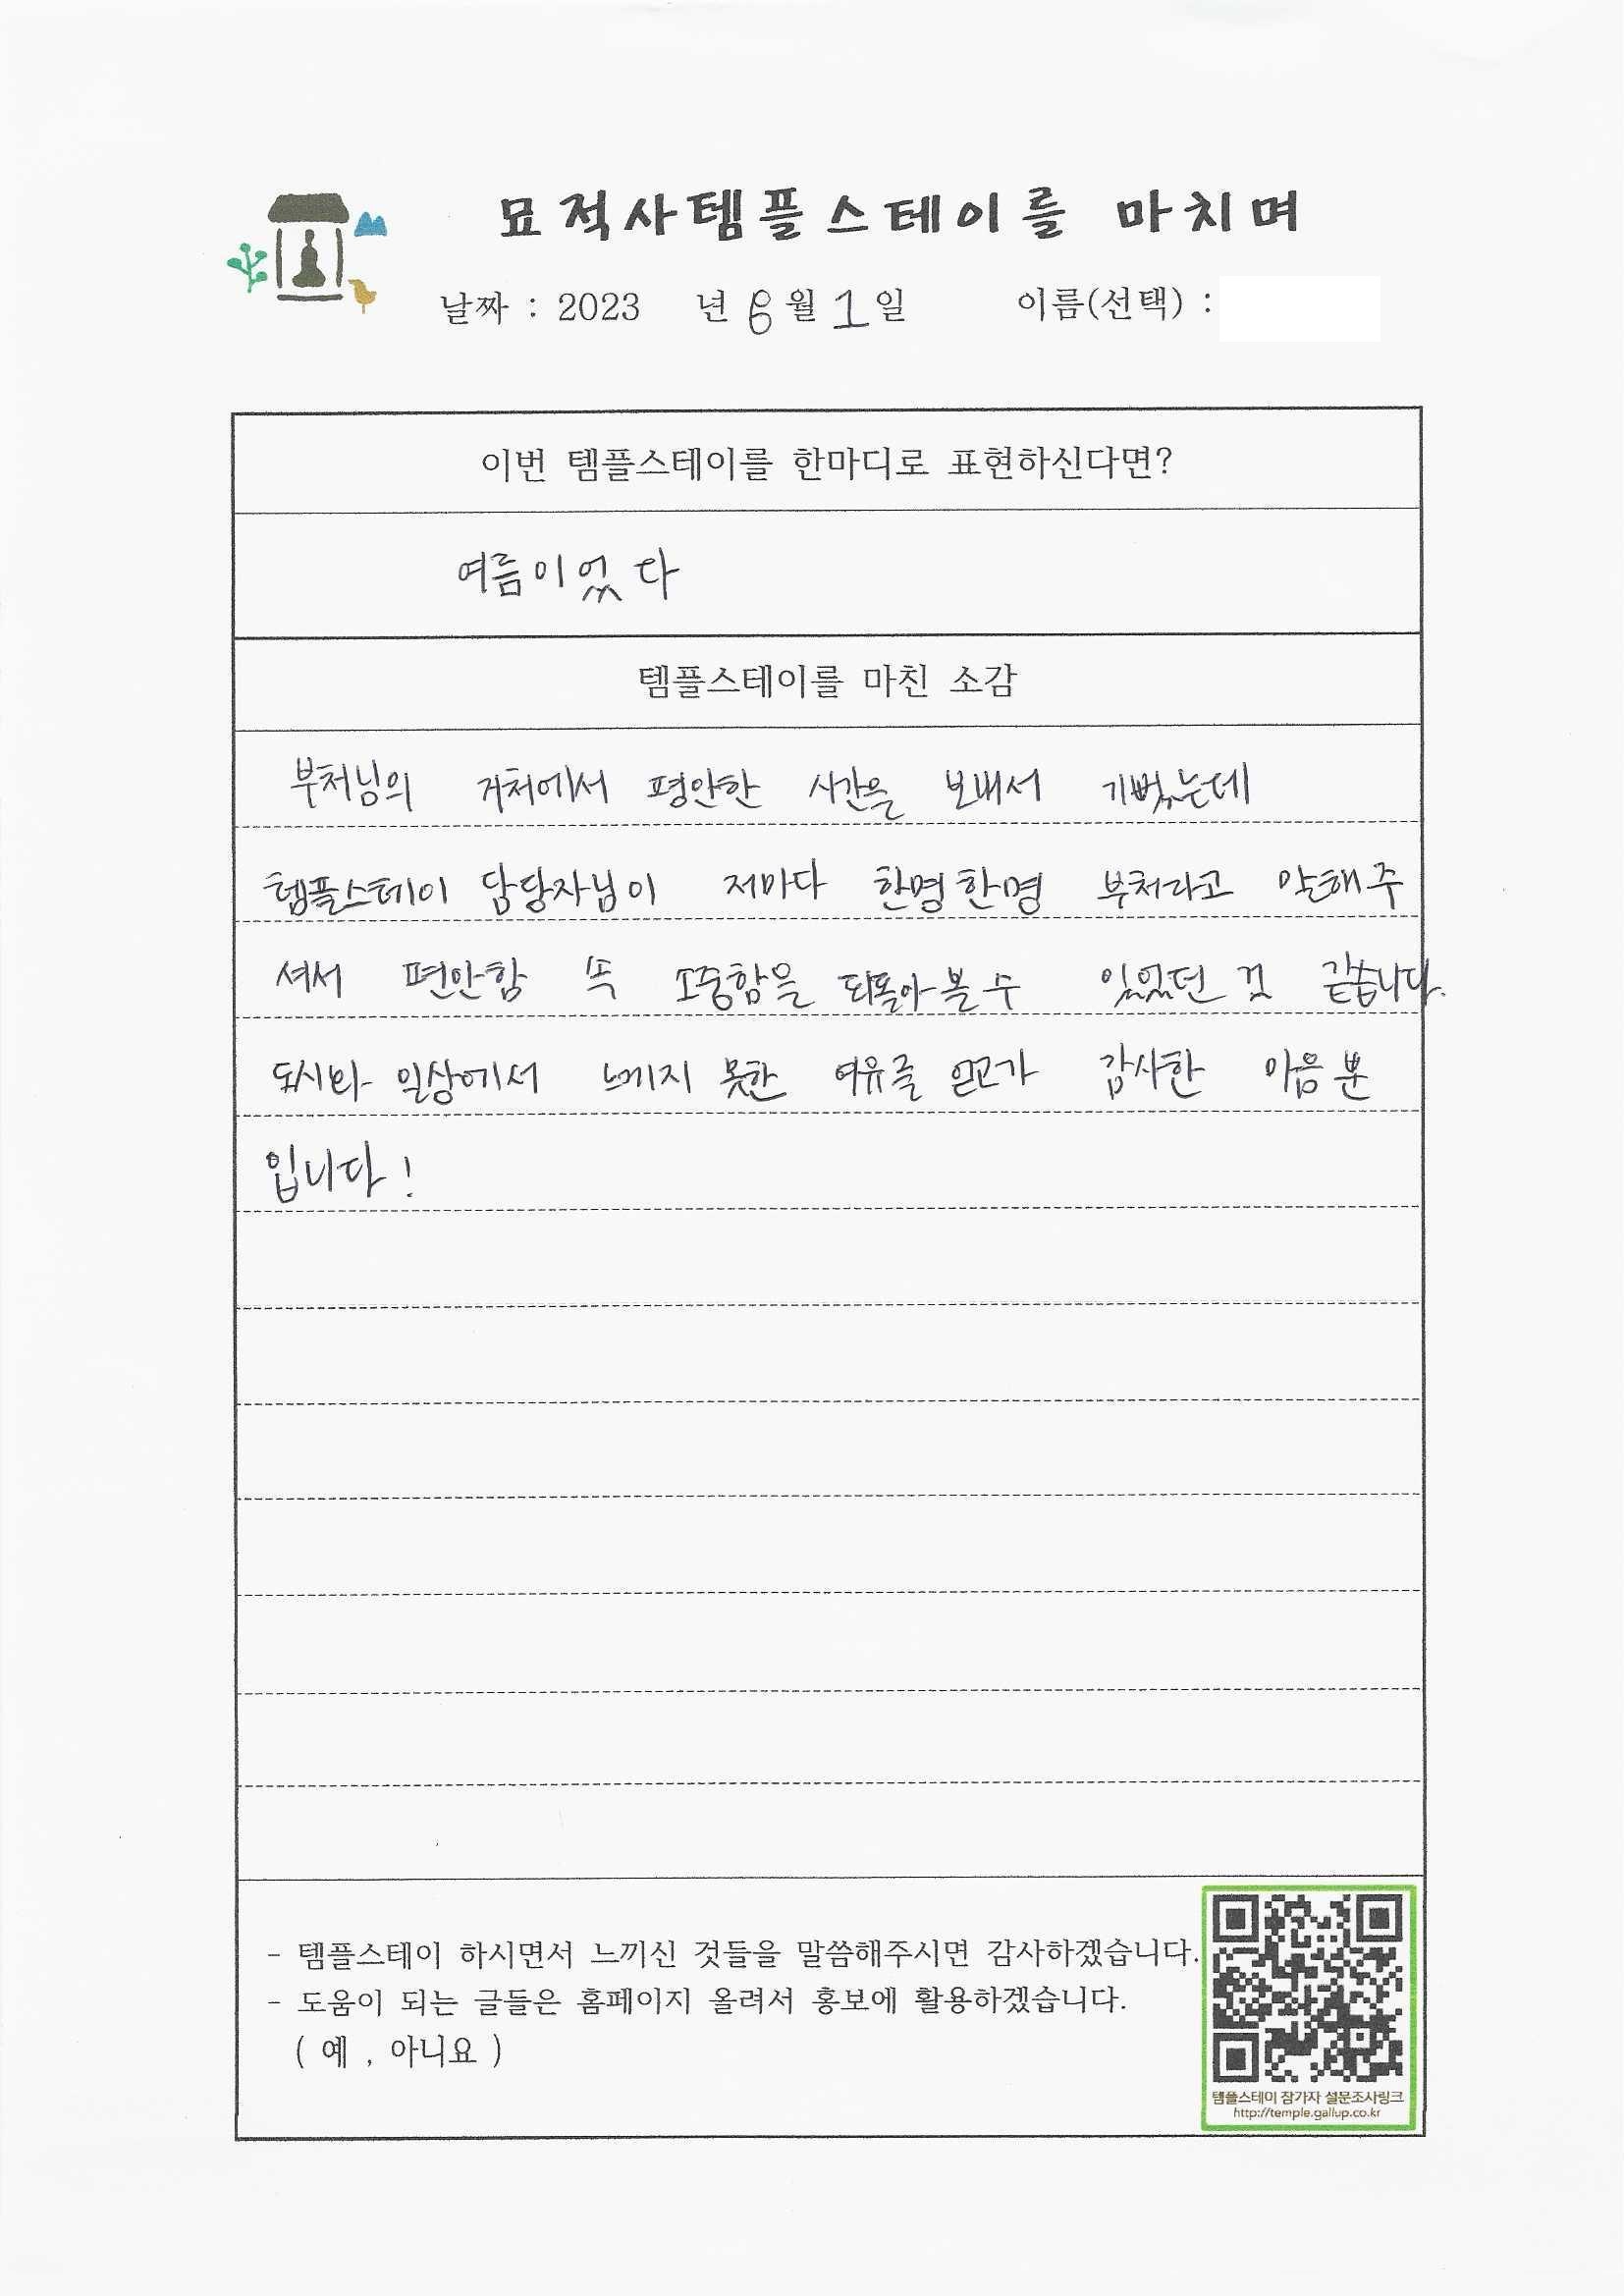 묘적사템플스테이를 마치며
날짜 : 2023 년 6월 1일 이름(선택) :
이번 템플스테이를 한마디로 표현하신다면?
여름이었다
템플스테이를 마친 소감
부처님의 거처에서 평안한 시간을 보내서 기뻤는데
템플스테이 담당자님이 저마다 한명한명 부처라고 말해주
셔서 편안함 속 소중함을 되돌아볼 수 있었던 것 같습니다.
도시와 일상에서 느끼지 못한 여유를 얻고가 감사한 마음뿐
입니다!
- 템플스테이 하시면서 느끼신 것들을 말씀해주시면 감사하겠습니다.
- 도움이 되는 글들은 홈페이지 올려서 홍보에 활용하겠습니다.
( 예 , 아니요 )
템플스테이 참가자 설문조사링크
http://temple.gallup.co.kr